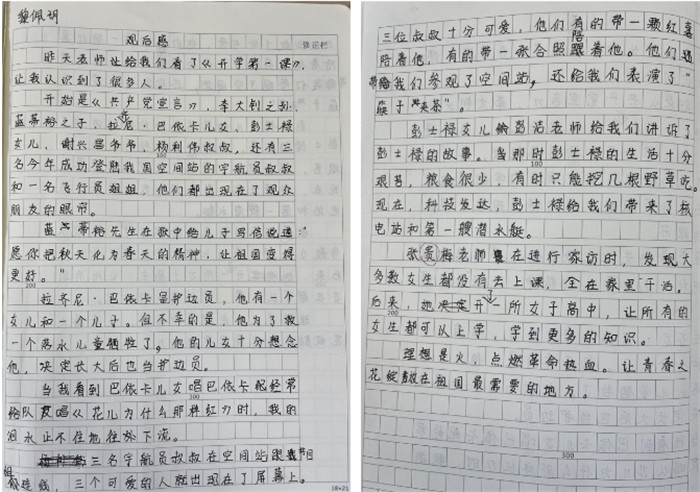 黎佩玥
观后感
昨天老师让给我们看了《开学第一课》，
让我认识到了很多人。
开始是《共产党宣言》，李大钊之孙、
蓝蒂裕之子，拉尼·巴依卡儿女、彭士禄
女儿、谢兴昌爷爷、杨利伟叔叔，还有三
名今年成功登陆我国空间站的宇航员叔叔
和一名飞行员姐姐，他们都出现在了观众
朋友的眼帘。
蓝蒂裕先生在歌中给儿子写信说道："
愿你把秋天化为春天的精神，让祖国变得
更好。"
拉齐尼·巴依卡是护边员，他有一个
女儿和一个儿子。但不幸的是，他为了救
一个落水儿童牺牲了。他的儿女十分想念
他，决定长大后也当护边员。
当我看到巴依卡儿女唱巴依卡配经常
给队友唱《花儿为什么那样红》时，我的
泪水止不住地往外下流。
三名宇航员叔叔在空间站跟节目
组连线，三个可爱的人就出现在了屏幕上。
18×21
三位叔叔十分可爱，他们有的带一颗红嘉
陪着他，有的带一张合照跟着他。他们还
带给我们参观了空间站，还给我们表演了"
筷子"夹茶"。
彭士禄女儿彭洁老师给我们讲诉了
彭士禄的故事。当那时彭士禄的生活十分
艰苦，粮食很少，有时只能挖几根野草吃。
现在，科技发达，彭士禄给我们带来了核
电站和第一艘潜水艇。
张贵梅老师在进行家访时，发现大
多数女生都没有去上课，全在家里干活，
后来，她决定开一所女子高中，让所有的
女生都可以上学，学到更多的知识。
理想是火，点燃革命热血。让青春之
花绽放在祖国最需要的地方。
300